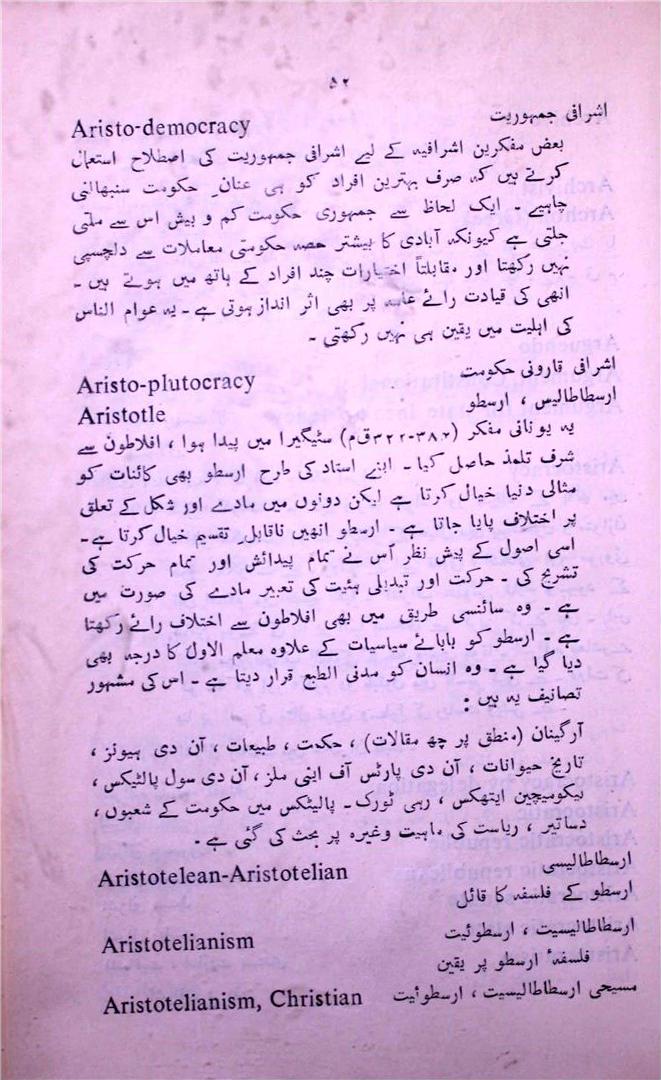 ۵۲
Aristo-democracy اشرافی جمہوریت
بعض مفکرین اشرافیہ کے لیے اشرافی جمہوریت کی اصطلاح استعمال
کرتے ہیں کہ صرف بہترین افراد کو ہی عنان حکومت سنبھالنی
چاہیے ۔ ایک لحاظ سے جمہوری حکومت کم و بیش اس سے ملتی
جلتی ہے کیونکہ آبادی کا بیشتر حصہ حکومتی معاملات سے دلچسپی
نہیں رکھتا اور مقابلتاً اختیارات چند افراد کے ہاتھ میں ہوتے ہیں ۔
انھی کی قیادت رائے عامہ پر بھی اثر انداز ہوتی ہے ۔ یہ عوام الناس
کی اہلیت میں یقین ہی نہیں رکھتی ۔
Aristo-plutocracy اشرافی قارونی حکومت
Aristotle ارسطاطالیس ، ارسطو
یہ یونانی مفکر (۳۸۴-۳۲۲ق م) سٹیگیرا میں پیدا ہوا ، افلاطون سے
شرف تلمذ حاصل کیا ۔ اپنے استاد کی طرح ارسطو بھی کائنات کو
مثالی دنیا خیال کرتا ہے لیکن دونوں میں مادے اور شکل کے تعلق
پر اختلاف پایا جاتا ہے ۔ ارسطو انھیں ناقابل تقسیم خیال کرتا ہے ۔
اسی اصول کے پیش نظر اس نے تمام پیدائش اور تمام حرکت کی
تشریح کی ۔ حرکت اور تبدیلی ہئیت کی تعبیر مادے کی صورت میں
ہے ۔ وہ سائنسی طریق میں بھی افلاطون سے اختلاف رائے رکھتا
ہے ۔ ارسطو کو بابائے سیاسیات کے علاوہ معلم الاول کا درجہ بھی
دیا گیا ہے ۔ وہ انسان کو مدنی الطبع قرار دیتا ہے ۔ اس کی مشہور
تصانیف یہ ہیں :
آرگینان (منطق پر چھ مقالات) ، حکمت ، طبیعات ، آن دی ہیونز ،
تاریخ حیوانات ، آن دی پارٹس آف اینی ملز ، آن دی سول پالٹیکس ،
نیکومیچین ایتھکس ، رہی ٹورک ۔ پالیٹکس میں حکومت کے شعبوں ،
دساتیر ، ریاست کی ماہیت وغیرہ پر بحث کی گئی ہے ۔
Aristotelean-Aristotelian ارسطاطالیسی
ارسطو کے فلسفہ کا قائل
Aristotelianism ارسطاطالیسیت ، ارسطوئیت
فلسفہٴ ارسطو پر یقین
Aristotelianism, Christian مسیحی ارسطاطالیسیت ، ارسطوئیت